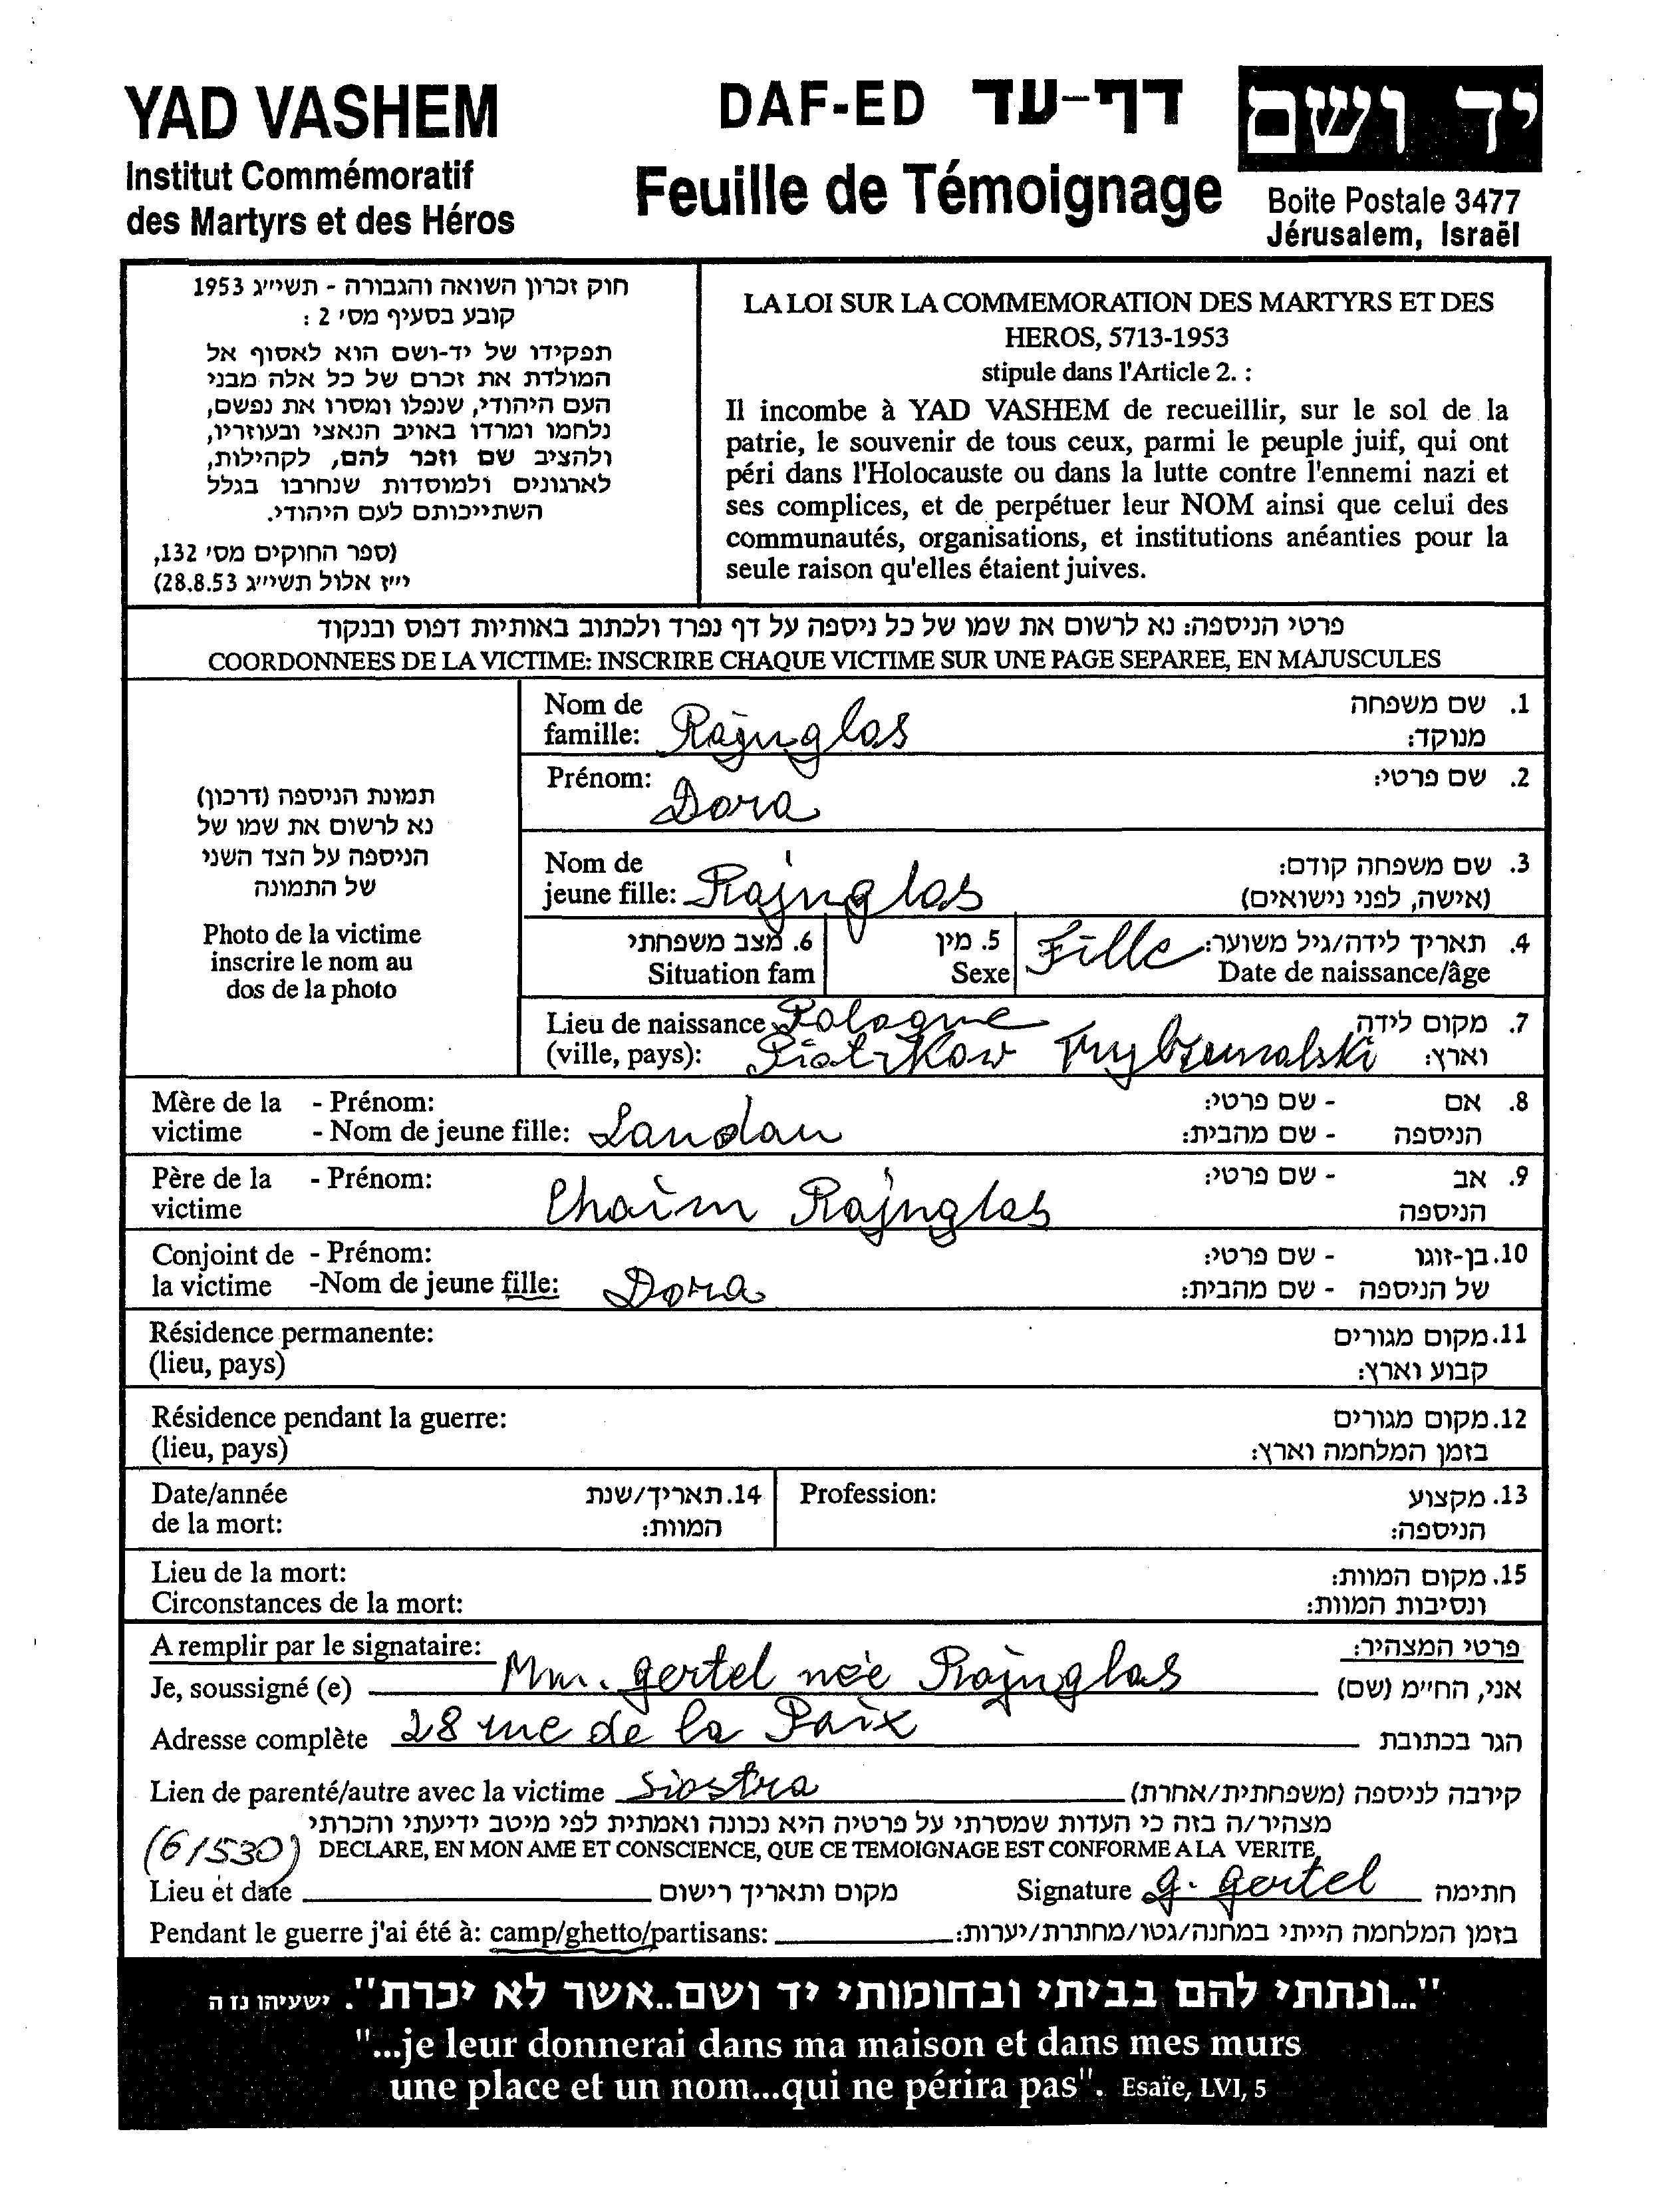 YAD VASHEM
Institut Commémoratif
des Martyrs et des Héros
DAF-ED דף-עד
Feuille de Témoignage
יד ושם
Boite Postale 3477
Jérusalem, Israël
חוק זכרון השואה והגבורה - תשי״ג 1953
קובע בסעיף מס׳ 2 :
תפקידו של יד-ושם הוא לאסוף אל
המולדת את זכרם של כל אלה מבני
העם היהודי, שנפלו ומסרו את נפשם,
נלחמו ומרדו באויב הנאצי ובעוזריו,
ולהציב שם וזכר להם, לקהילות,
לארגונים ולמוסדות שנחרבו בגלל
השתייכותם לעם היהודי.
(ספר החוקים מס׳ 132,
י״ז אלול תשי״ג 28.8.53)
LA LOI SUR LA COMMEMORATION DES MARTYRS ET DES
HEROS, 5713-1953
stipule dans l'Article 2. :
Il incombe à YAD VASHEM de recueillir, sur le sol de la
patrie, le souvenir de tous ceux, parmi le peuple juif, qui ont
péri dans l'Holocauste ou dans la lutte contre l'ennemi nazi et
ses complices, et de perpétuer leur NOM ainsi que celui des
communautés, organisations, et institutions anéanties pour la
seule raison qu'elles étaient juives.
פרטי הניספה: נא לרשום את שמו של כל ניספה על דף נפרד ולכתוב באותיות דפוס ובנקוד
COORDONNEES DE LA VICTIME: INSCRIRE CHAQUE VICTIME SUR UNE PAGE SEPAREE, EN MAJUSCULES
תמונת הניספה (דרכון)
נא לרשום את שמו של
הניספה על הצד השני
של התמונה
Photo de la victime
inscrire le nom au
dos de la photo
Nom de 1. שם משפחה
famille: Rajnglas מנוקד:
Prénom: 2. שם פרטי:
Dora
Nom de 3. שם משפחה קודם:
jeune fille: Rajnglas (אישה, לפני נישואים)
6. מצב משפחתי 5. מין Fille 4. תאריך לידה/גיל משוער:
Situation fam Sexe Date de naissance/âge
Lieu de naissance Pologne 7. מקום לידה
(ville, pays): Piotrkow Trybunalski וארץ:
Mère de la - Prénom: 8. אם - שם פרטי:
victime - Nom de jeune fille: Landau הניספה - שם מהבית:
Père de la - Prénom: 9. אב - שם פרטי:
victime Chaim Rajnglas הניספה
Conjoint de - Prénom: 10. בן-זוגו - שם פרטי:
la victime -Nom de jeune fille: Dora של הניספה - שם מהבית:
Résidence permanente: 11. מקום מגורים
(lieu, pays) קבוע וארץ:
Résidence pendant la guerre: 12. מקום מגורים
(lieu, pays) בזמן המלחמה וארץ:
Date/année 14. תאריך/שנת Profession: 13. מקצוע
de la mort: המוות: הניספה:
Lieu de la mort: 15. מקום המוות:
Circonstances de la mort: ונסיבות המוות:
A remplir par le signataire: פרטי המצהיר:
Je, soussigné (e) Mm. Gertel née Rajnglas אני, החי״מ (שם)
Adresse complète 28 rue de la Paix הגר בכתובת
Lien de parenté/autre avec la victime Siostra קירבה לניספה (משפחתית/אחרת)
מצהיר/ה בזה כי העדות שמסרתי על פרטיה היא נכונה ואמתית לפי מיטב ידיעתי והכרתי
(6/530) DECLARE, EN MON AME ET CONSCIENCE, QUE CE TEMOIGNAGE EST CONFORME A LA VERITE,
Lieu et date מקום ותאריך רישום Signature G. Gertel חתימה
Pendant le guerre j'ai été à: camp/ghetto/partisans: בזמן המלחמה הייתי במחנה/גטו/מחתרת/יערות:
"...ונתתי להם בביתי ובחומותי יד ושם..אשר לא יכרת". ישעיהו נז ה
"...je leur donnerai dans ma maison et dans mes murs
une place et un nom...qui ne périra pas". Esaïe, LVI, 5